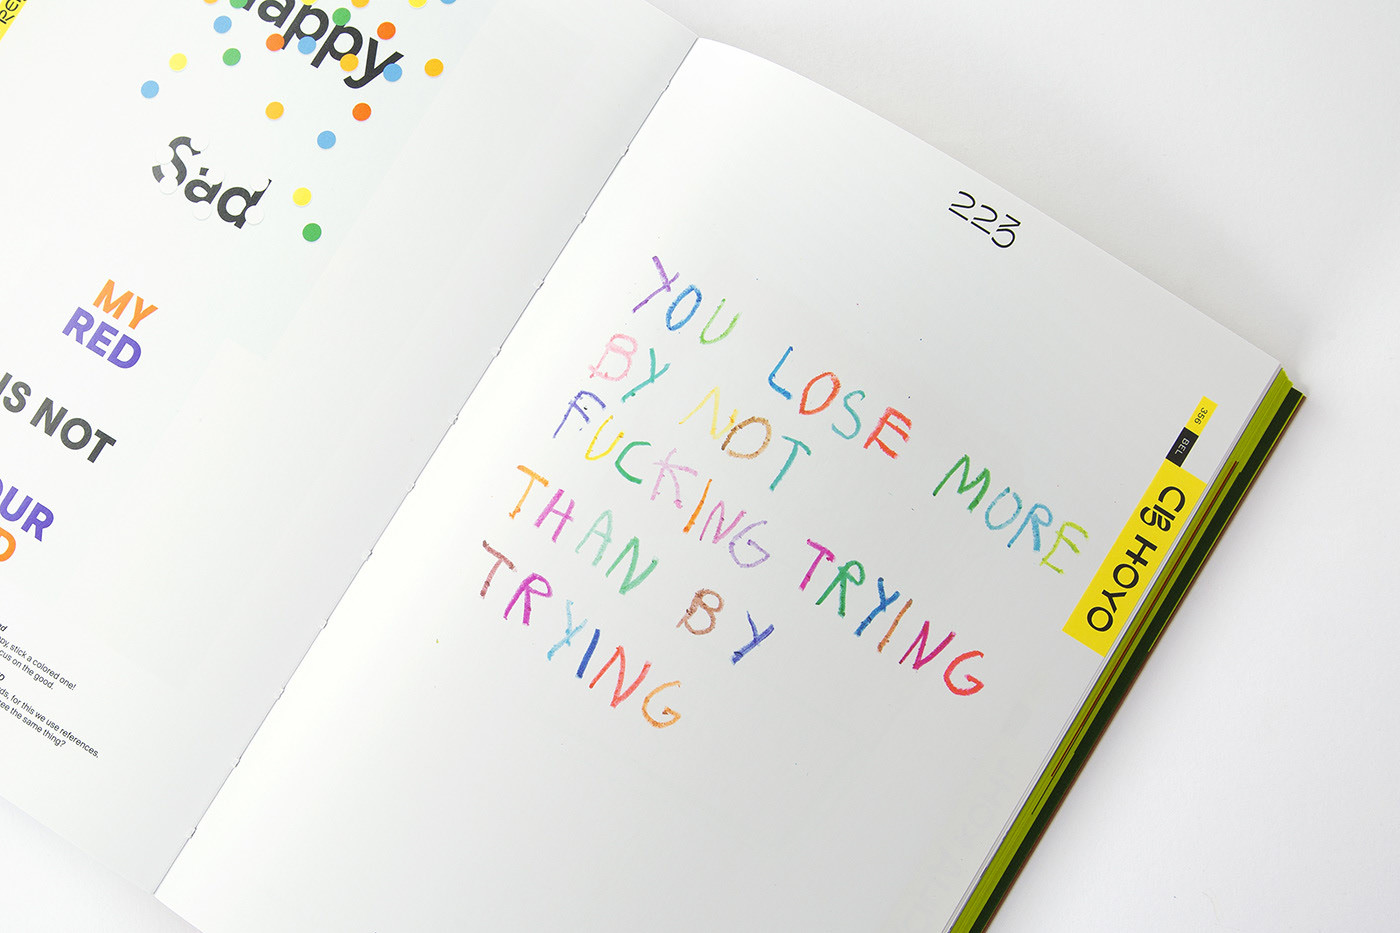 Happy
Sad
MY
RED
IS NOT
OUR
py, stick a colored one!
cus on the good.
ds, for this we use references.
ree the same thing?
223
YOU LOSE MORE
BY NOT
FUCKING TRYING
THAN BY
TRYING
356
BEL
HOYO